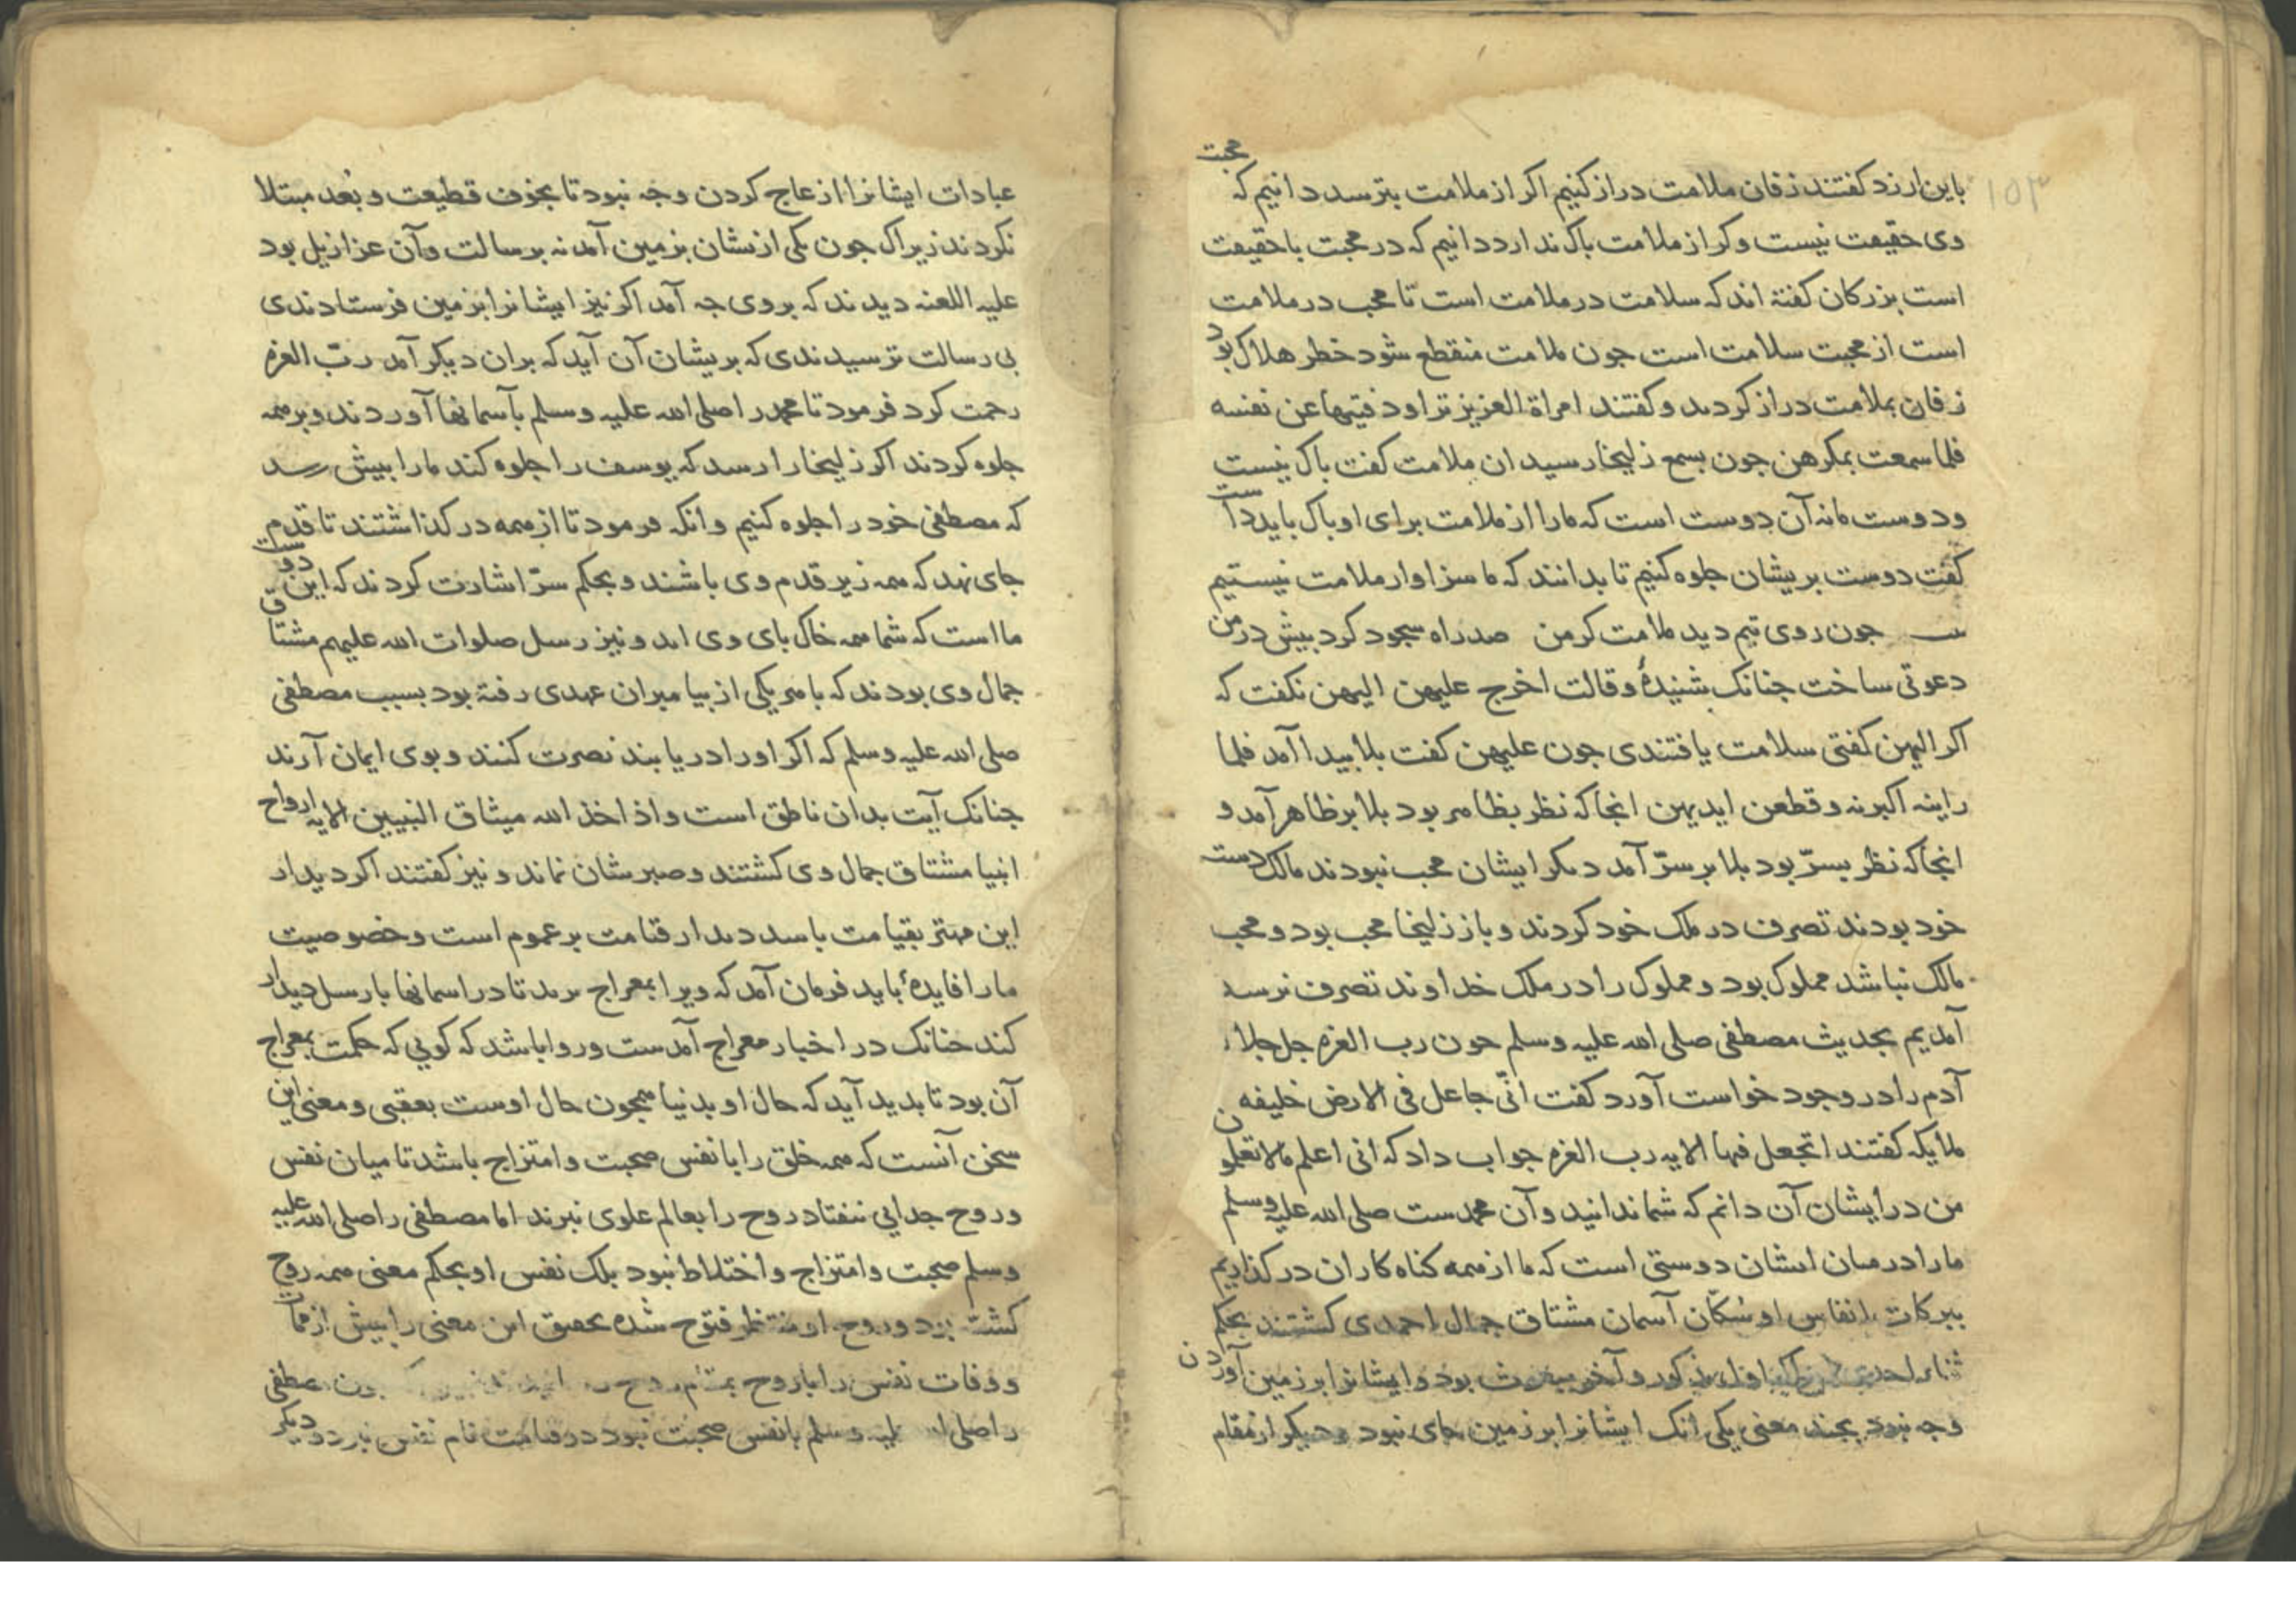 ۱۵۳
باین ارزد کفتند زفان ملامت دراز کنیم اکر از ملامت بترسد دانیم که محبت
وی حقیقت نیست وکر از ملامت باک ندارد دانیم که در محبت با حقیقت
است بزرکان کفته اند که سلامت در ملامت است تا محب در ملامت
است از محبت سلامت است جون ملامت منقطع شود خطر هلاک بود
زفان بملامت دراز کردند و کفتند امراة العزیز تراود فتیها عن نفسه
فلما سمعت بمکرهن جون بسمع زلیخا رسید ان ملامت کفت باک نیست
ودوست مانه آن دوست است که مارا از ملامت برای او باک باید داست
کفت دوست بریشان جلوه کنیم تا بدانند که ما سزاوار ملامت نیستیم
جون روی تیم دید ملامت کر من صد راه سجود کرد بیش در من
دعوتی ساخت جنانک بشنیدهٔ وقالت اخرج علیهن الیهن نکفت که
اکر الیهن کفتی سلامت یافتندی جون علیهن کفت بلا بیدا آمد فلما
راینه اکبرنه وقطعن ایدیهن انجا که نظر بظاهر بود بلا بر ظاهر آمد و
انجا که نظر بسرّ بود بلا بر سرّ آمد دیکر ایشان محب نبودند مالک دست
خود بودند تصرف در ملک خود کردند و باز زلیخا محب بود و محب
مالک نباشد مملوک بود و مملوک را در ملک خداوند تصرف نرسد
آمدیم بحدیث مصطفی صلی الله علیه وسلم جون رب العزه جل جلاله
آدم را در وجود خواست آورد کفت انّی جاعل فی الارض خلیفه
ملایکه کفتند اتجعل فیها الایه رب العزه جواب داد که انی اعلم مالا تعلمون
من در ایشان آن دانم که شما ندانید وآن محمدست صلی الله علیه وسلم
مارا در میان ایشان دوستی است که ما از همه کناه کاران در کذاریم
ببرکات انفاس او سُکّان آسمان مشتاق جمال احمدی کشتند بحکم
ثناء بود و ایشانرا بر زمین آوردن
وجه نبود بجند معنی یکی انک ایشانرا بر زمین جای نبود ودیکر از مقام
عبادات ایشانرا ازعاج کردن وجه نبود تا بخوف قطیعت و بُعد مبتلا
نکردند زیراک جون یکی ازیشان بزمین آمد نه برسالت وآن عزازیل بود
علیه اللعنه دیدند که بر وی جه آمد اکر نیز ایشانرا بزمین فرستادندی
بی رسالت ترسیدندی که بریشان آن آید که بران دیکر آمد ربّ العزه
رحمت کرد فرمود تا محمد را صلی الله علیه وسلم بآسمانها آوردند وبر همه
جلوه کردند اکر زلیخا را رسد که یوسف را جلوه کند مارا بیش رسد
که مصطفی خود را جلوه کنیم وانکه فرمود تا از همه در کذاشتند تا قدم
جای نهد که همه زیر قدم وی باشند و بحکم سرّ اشارت کردند که این دوست
ما است که شما همه خاک بای وی اید و نیز رسل صلوات الله علیهم مشتاق
جمال وی بودند که با هر یکی از بیامبران عهدی رفته بود بسبب مصطفی
صلی الله علیه وسلم که اکر او را دریابند نصرت کنند و بوی ایمان آرند
جنانک آیت بدان ناطق است واذ اخذ الله میثاق النبیین الایه ارواح
انبیا مشتاق جمال وی کشتند و صبرشان نماند و نیز کفتند اکر دیدار
این مهتر بقیامت باسد دیدار قیامت بر عموم است و خصوصیت
مارا فایدهٔ باید فرمان آمد که ویرا بمعراج برید تا در اسمانها با رسل دیدار
کند جنانک در اخبار معراج آمدست و روا باشد که کویی که حکمت بمعراج
آن بود تا بدید آید که حال او بدنیا همجون حال اوست بعقبی و معنی این
سخن آنست که همه خلق را با نفس صحبت و امتزاج باشد تا میان نفس
وروح جدایی نیفتاد روح را بعالم علوی نبرند اما مصطفی را صلی الله علیه
وسلم صحبت و امتزاج و اختلاط نبود بلک نفس او بحکم معنی همه روح
کشت بود و روح او شده بحقیق این معنی را بیش از ممات
و وفات نفس را با روح
را صلی الله علیه وسلم با نفس صحبت نبود در قیامت نام نفس نبرد و دیکر